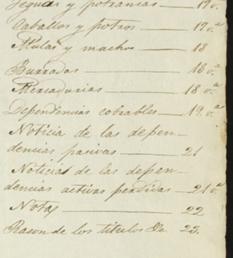 Yeguas y potrancas — 17 v.ª
Caballos y potros — 17 v.ª
Mulas y machos — 18
Burradas — 18 v.ª
Mercadurias — 18 v.ª
Dependencias cobrables — 19 v.ª
Noticia de las depen-
dencias pasivas — 21
Noticias de las depen-
dencias activas perdidas — 21 v.ª
Notas — 22
Rason de los titulos &a. 23.